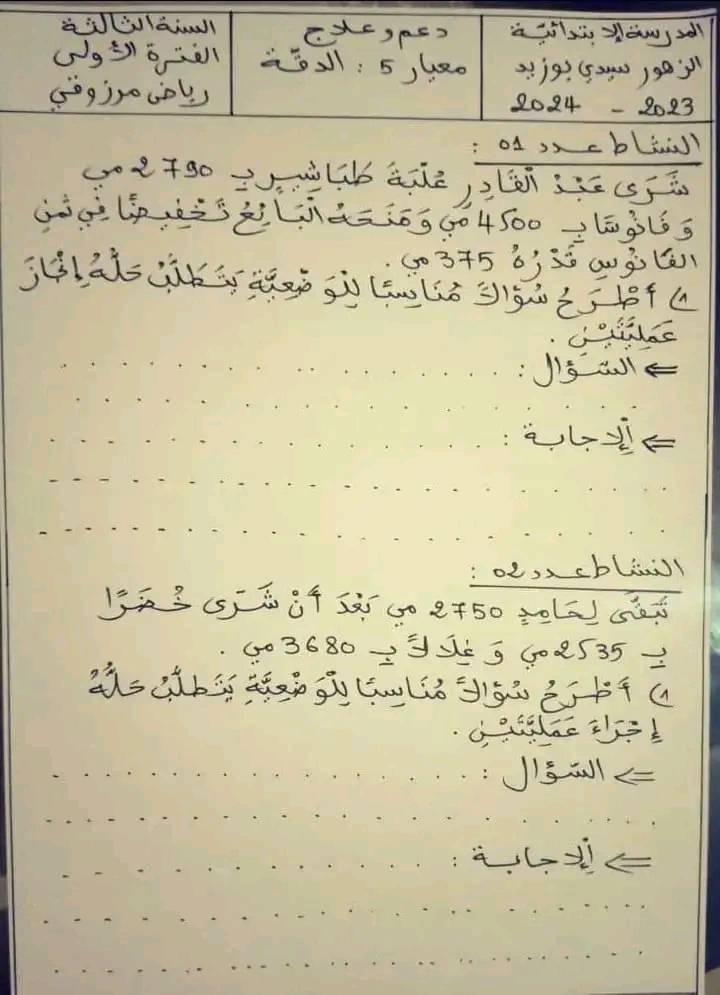 المدرسة الابتدائيّة
الزهور سيدي بوزيد
2023 - 2024
دعم و علاج
معيار 5 : الدقّة
السنة الثالثة
الفترة الأولى
رياض مرزوقي
النشاط عدد 01 :
شَرَى عَبْدُ الْقَادِرِ عُلْبَةَ طَبَاشِيرٍ بِـ 2790 مي
وَ فَانُوسًا بِـ 4500 مي وَ مَنَحَهُ الْبَائِعُ تَخْفِيضًا فِي ثَمَنِ
الفَانُوسِ قَدْرُهُ 375 مي .
1) أَطْرَحُ سُؤَالاً مُنَاسِبًا لِلْوَضْعِيَّةِ يَتَطَلَّبُ حَلُّهُ إِنْجَازَ
عَمَلِيَّتَيْنِ .
⇐ السّؤال : . . . . . . . . . . . . . . . .
. . . . . . . . . . . . . . . . . . .
⇐ الإجابة : . . . . . . . . . . . . . . .
. . . . . . . . . . . . . . . . . . .
. . . . . . . . . . . . . . . . . . .
النشاط عدد 02 :
تَبَقَّى لِحَامِدٍ 2750 مي بَعْدَ أَنْ شَرَى خُضَرًا
بِـ 2535 مي وَ غِلَالاً بِـ 3680 مي .
1) أَطْرَحُ سُؤَالاً مُنَاسِبًا لِلْوَضْعِيَّةِ يَتَطَلَّبُ حَلُّهُ
إِجْرَاءَ عَمَلِيَّتَيْنِ .
⇐ السّؤال : . . . . . . . . . . . . . . .
. . . . . . . . . . . . . . . . . . .
⇐ الإجابة : . . . . . . . . . . . . . . .
. . . . . . . . . . . . . . . . . . .
. . . . . . . . . . . . . . . . . . .